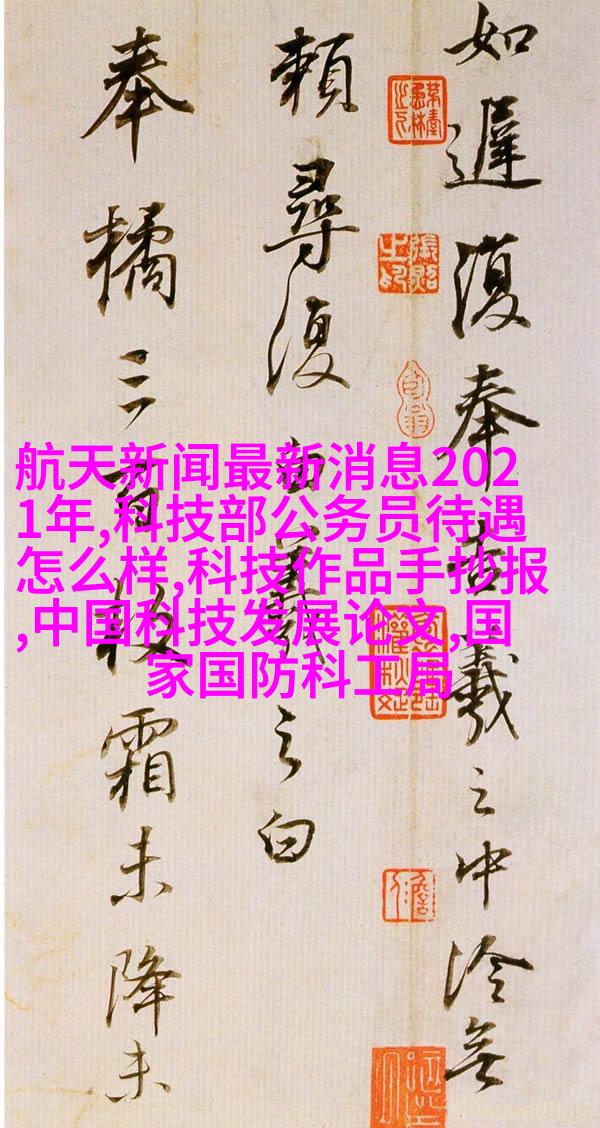 如遲復奉告羲之中冷無
賴尋復白羲之白
奉橘三百枚霜未降未
航天新闻最新消息202
1年,科技部公务员待遇
怎么样,科技作品手抄报
,中国科技发展论文,国
家国防科工局